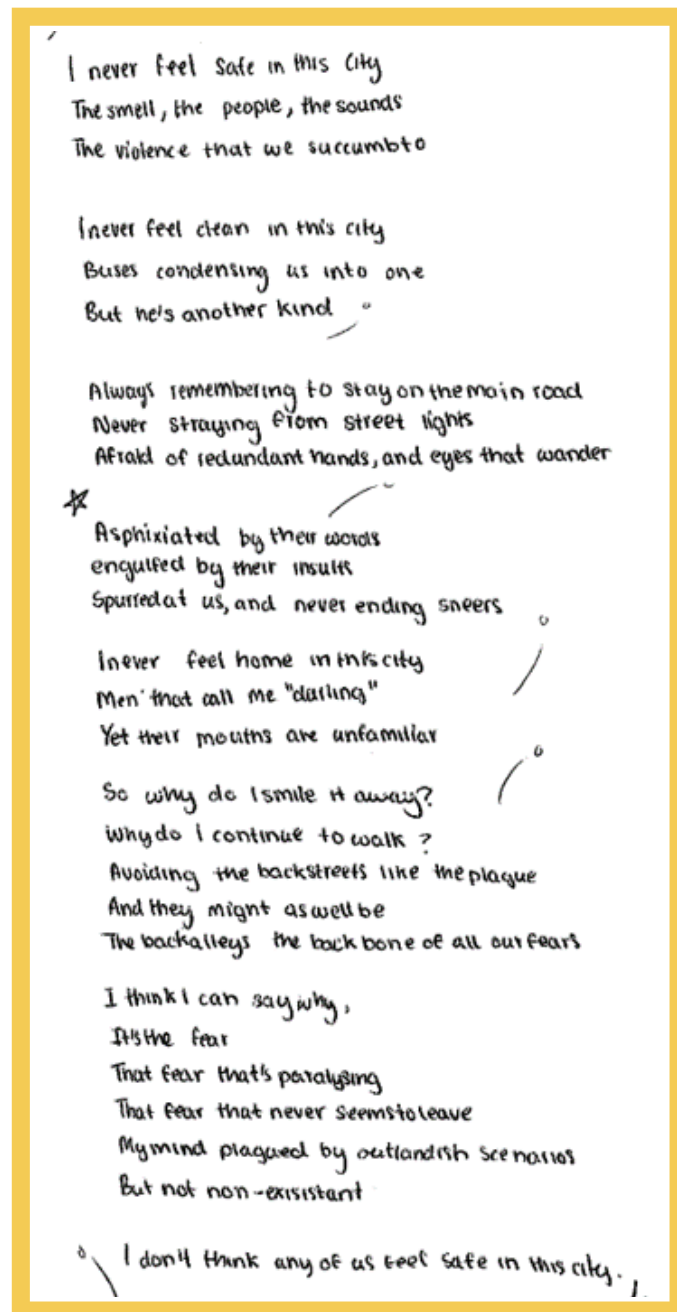 I never feel safe in this city
The smell, the people, the sounds
The violence that we succumb to
I never feel clean in this city
Buses condensing us into one
But he's another kind
Always remembering to stay on the main road
Never straying from street lights
Afraid of redundant hands, and eyes that wander
Asphixiated by their words
engulfed by their insults
Spurred at us, and never ending sneers
I never feel home in this city
Men that call me "darling"
Yet their mouths are unfamiliar
So why do I smile it away?
Why do I continue to walk?
Avoiding the backstreets like the plague
And they might as well be
The backalleys the back bone of all our fears
I think I can say why,
It's the fear
That fear that's paralysing
That fear that never seems to leave
My mind plagued by outlandish scenarios
But not non-exisistant
I don't think any of us feel safe in this city.